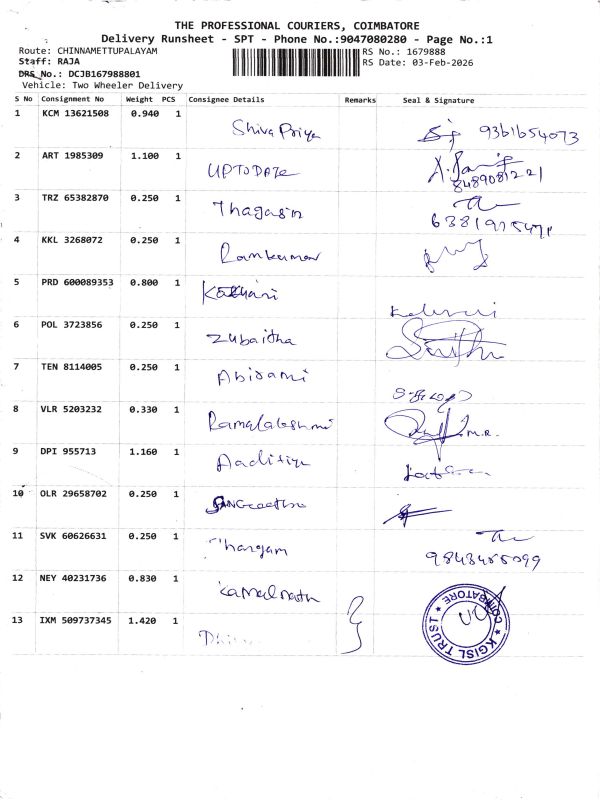 THE PROFESSIONAL COURIERS, COIMBATORE
Delivery Runsheet - SPT - Phone No.:9047080280 - Page No.:1
Route: CHINNAMETTUPALAYAM RS No.: 1679888
Staff: RAJA RS Date: 03-Feb-2026
DRS No.: DCJB167988801
Vehicle: Two Wheeler Delivery
S No Consignment No Weight PCS Consignee Details Remarks Seal & Signature
1 KCM 13621508 0.940 1 Shiva Priya 9361654073
2 ART 1985309 1.100 1 UPTODATE 8489081221
3 TRZ 65382870 0.250 1 Thagasin
4 KKL 3268072 0.250 1 Ramkumar
5 PRD 600089353 0.800 1
6 POL 3723856 0.250 1 Zubaitha
7 TEN 8114005 0.250 1 Abirami
8 VLR 5203232 0.330 1 Ramalakshmi
9 DPI 955713 1.160 1 Aaditiya
10 OLR 29658702 0.250 1
11 SVK 60626631 0.250 1 Thangam
12 NEY 40231736 0.830 1 Kamalnath
13 IXM 509737345 1.420 1
KGISL TRUST * COIMBATORE *